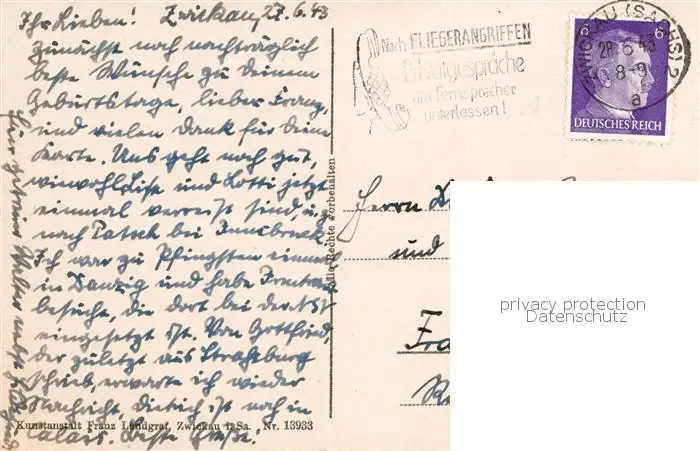 Ihr Lieben! Zwickau, 27.6.43
zunächst noch nachträglich
beste Wünsche zu deinem
Geburtstage, lieber Franz,
und vielen Dank für deine
Karte. Uns geht noch gut,
wiewohl Lisa und Lotti jetzt
einmal verreist sind, u. z.
nach Patsch bei Innsbruck.
Ich war zu Pfingsten einmal
in Danzig und habe
besucht, die dort bei der
eingesetzt ist. Von Gottfried,
der zuletzt aus Straßburg
schrieb, erwarte ich wieder
Nachricht, Dietrich ist noch in
Calais. Beste Grüße!
Euer getreuer Walter nebst
Kunstanstalt Franz Landgraf, Zwickau i. Sa. Nr. 13933
Alle Rechte Vorbehalten
Nach FLIEGERANGRIFFEN
Privatgespräche
am Fernsprecher
unterlassen!
ZWICKAU (SACHS) 2
28.6.43
8-9
a
6 6
DEUTSCHES REICH
Herrn
und
Fra
privacy protection
Datenschutz